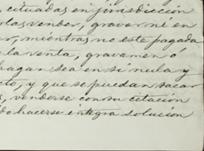 situadas en jurisdiccion
vender, gravar ni en
mientras no este pagada
la venta, gravamen ó
hagan sea en si nula y
y que se puedan sacar
venderse con su citacion
hacerse integra solucion